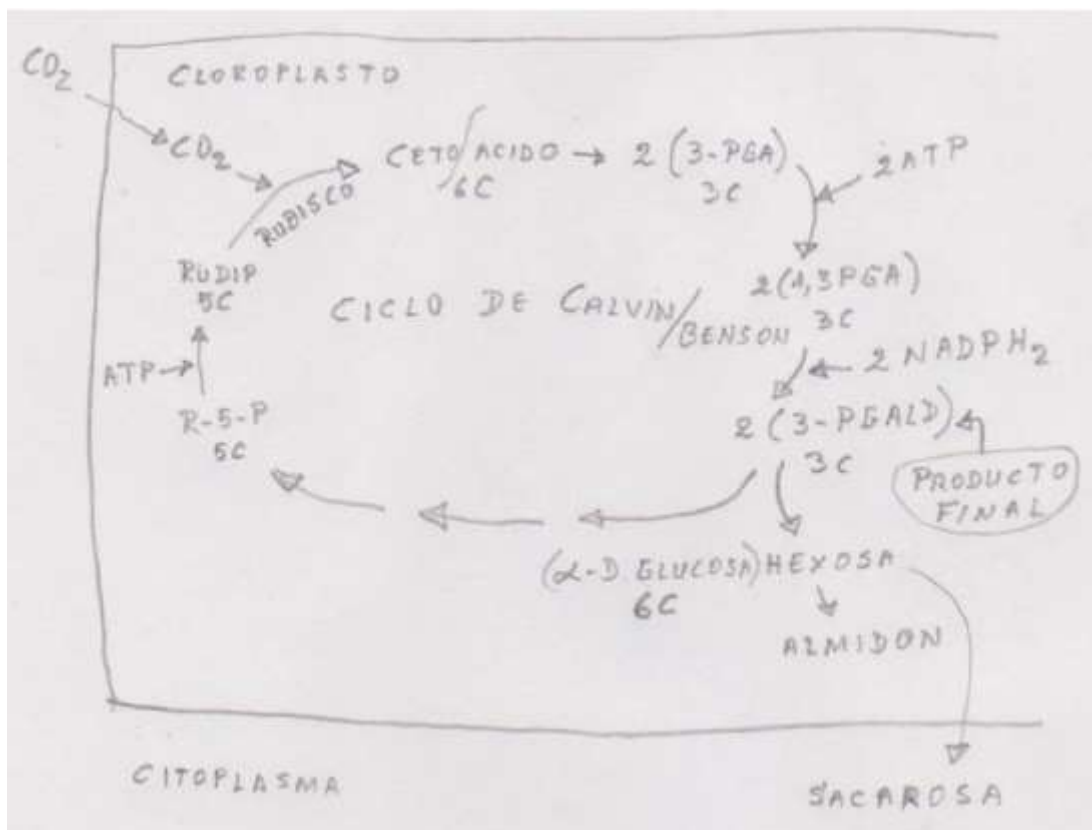 CO2
CLOROPLASTO
CO2
RUBISCO
CETO/ACIDO → 2 (3-PGA)
6C
3C
2ATP
RUDIP
5C
CICLO DE CALVIN/BENSON
2(1,3PGA)
3C
2 NADPH2
ATP
R-5-P
5C
2 (3-PGALD)
3C
PRODUCTO
FINAL
(α-D GLUCOSA) HEXOSA
6C
ALMIDON
CITOPLASMA
SACAROSA